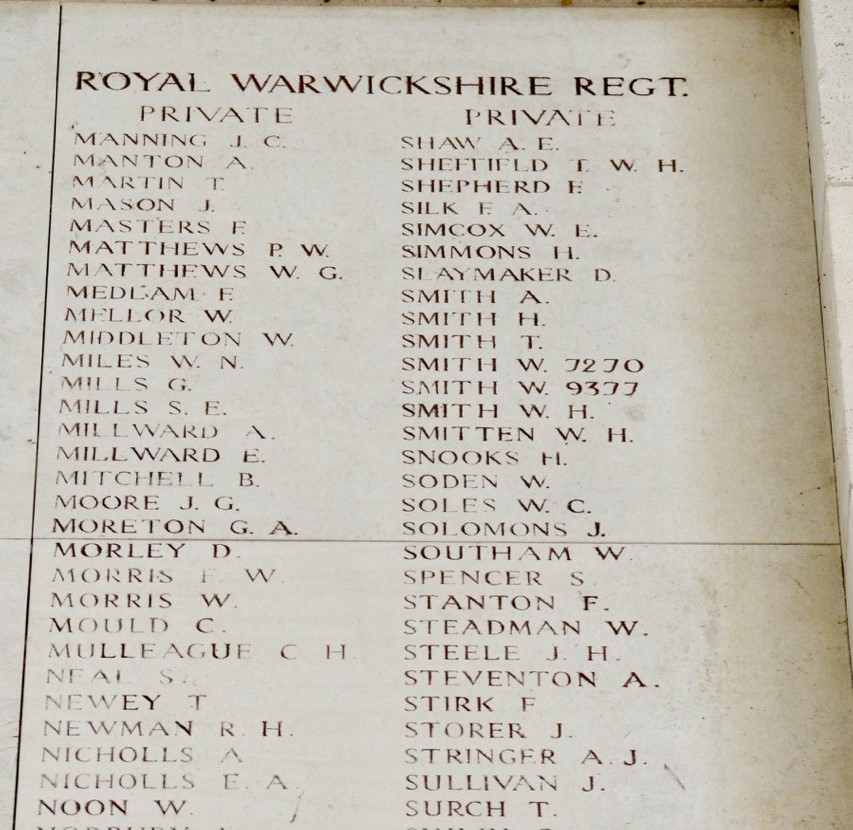 ROYAL WARWICKSHIRE REGT.
PRIVATE
MANNING J. C.
MANTON A.
MARTIN T.
MASON J.
MASTERS F.
MATTHEWS P. W.
MATTHEWS W. G.
MEDLAM F.
MELLOR W.
MIDDLETON W.
MILES W. N.
MILLS G.
MILLS S. E.
MILLWARD A.
MILLWARD E.
MITCHELL B.
MOORE J. G.
MORETON G. A.
MORLEY D.
MORRIS F. W.
MORRIS W.
MOULD C.
MULLEAGUE C. H.
NEAL S.
NEWEY T
NEWMAN R. H.
NICHOLLS A
NICHOLLS E. A.
NOON W.
PRIVATE
SHAW A. E.
SHEFFIELD T. W. H.
SHEPHERD F.
SILK F. A.
SIMCOX W. E.
SIMMONS H.
SLAYMAKER D.
SMITH A.
SMITH H.
SMITH T.
SMITH W. 7270
SMITH W. 9377
SMITH W. H.
SMITTEN W. H.
SNOOKS H.
SODEN W.
SOLES W. C.
SOLOMONS J.
SOUTHAM W.
SPENCER S.
STANTON F.
STEADMAN W.
STEELE J. H.
STEVENTON A.
STIRK F
STORER J.
STRINGER A. J.
SULLIVAN J.
SURCH T.